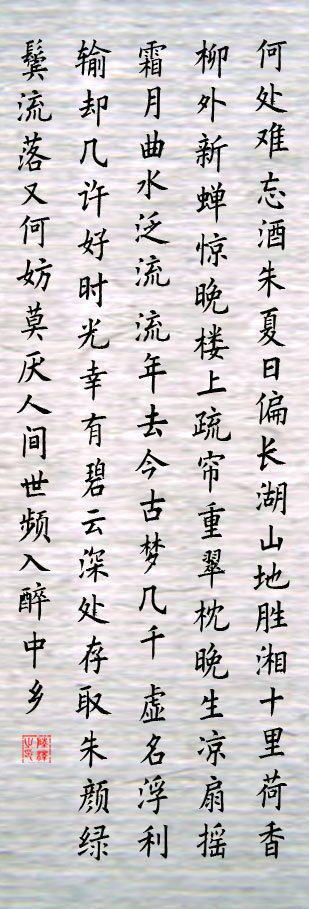 何处难忘酒朱夏日偏长湖山地胜湘十里荷香
柳外新蝉惊晚楼上疏帘重翠枕晚生凉扇摇
霜月曲水泛流流年去今古梦几千 虚名浮利
输却几许好时光幸有碧云深处存取朱颜绿
鬓流落又何妨莫厌人间世频入醉中乡